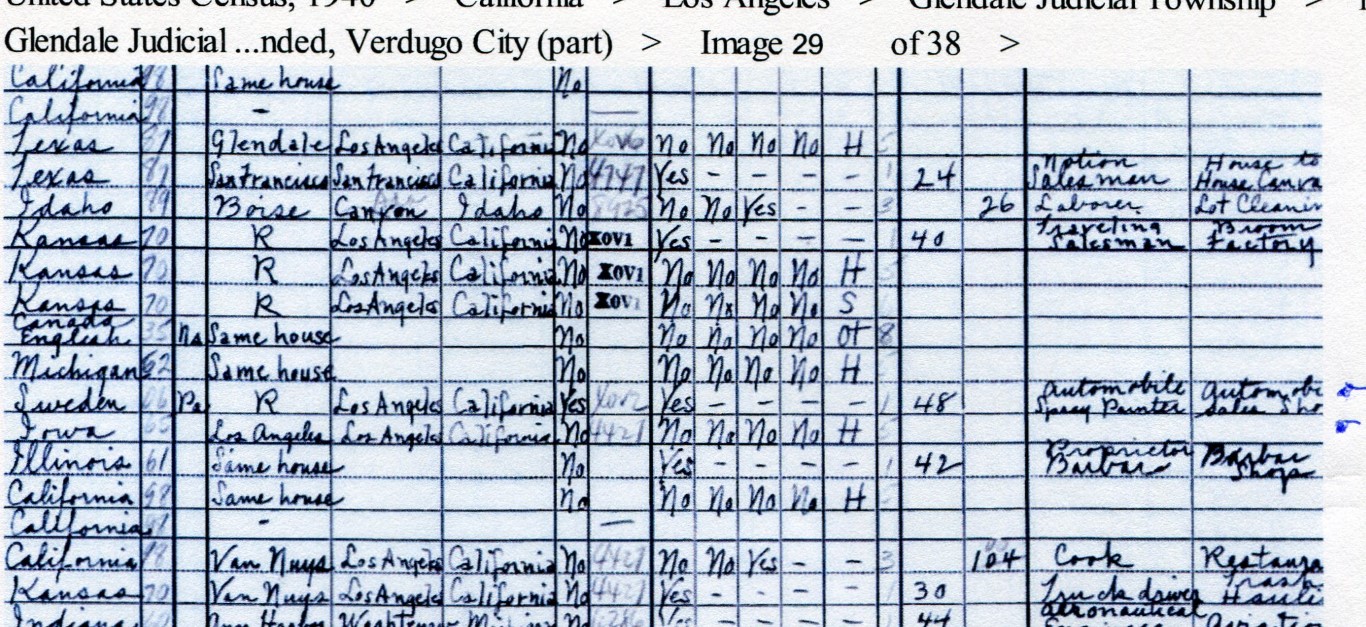 United States Census, 1940 > California > Los Angeles > Glendale Judicial Township >
Glendale Judicial ...nded, Verdugo City (part) > Image 29 of 38 >
California 98 Same house No
California 98 - —
Texas 87 Glendale Los Angeles California No X0V6 No No No No H 5
Texas 87 San Francisco San Francisco California No 4747 Yes - - - - 1 24 Notion Salesman House to House Canva
Idaho 89 Boise Canyon Idaho No No No Yes - - 3 26 Laborer Lot Cleanin
Kansas 70 R Los Angeles California No X0V1 Yes - - - - 1 40 Traveling Salesman Broom Factory
Kansas 70 R Los Angeles California No X0V1 No No No No H 5
Kansas 70 R Los Angeles California No X0V1 No No No No S
Canada English 35 Na Same house No No No No No Ot 8
Michigan 62 Same house No No No No No H
Sweden 06 Pa R Los Angeles California Yes X0V2 Yes - - - - 1 48 Automobile Spray Painter Automobi Sales Sho
Iowa 65 Los Angeles Los Angeles California No 4421 No No No No H 5
Illinois 61 Same house No Yes - - - - 1 42 Proprietor Barbar Barbar Shop
California 98 Same house No No No No No H 5
California 98 - —
California 98 Van Nuys Los Angeles California No 4421 No No Yes - - 3 104 Cook Restaura
Kansas 70 Van Nuys Los Angeles California No 4421 Yes - - - - 1 30 Truck driver Trash Hauli
Indiana Yes - - - - 44 Aeronautical Aviatio